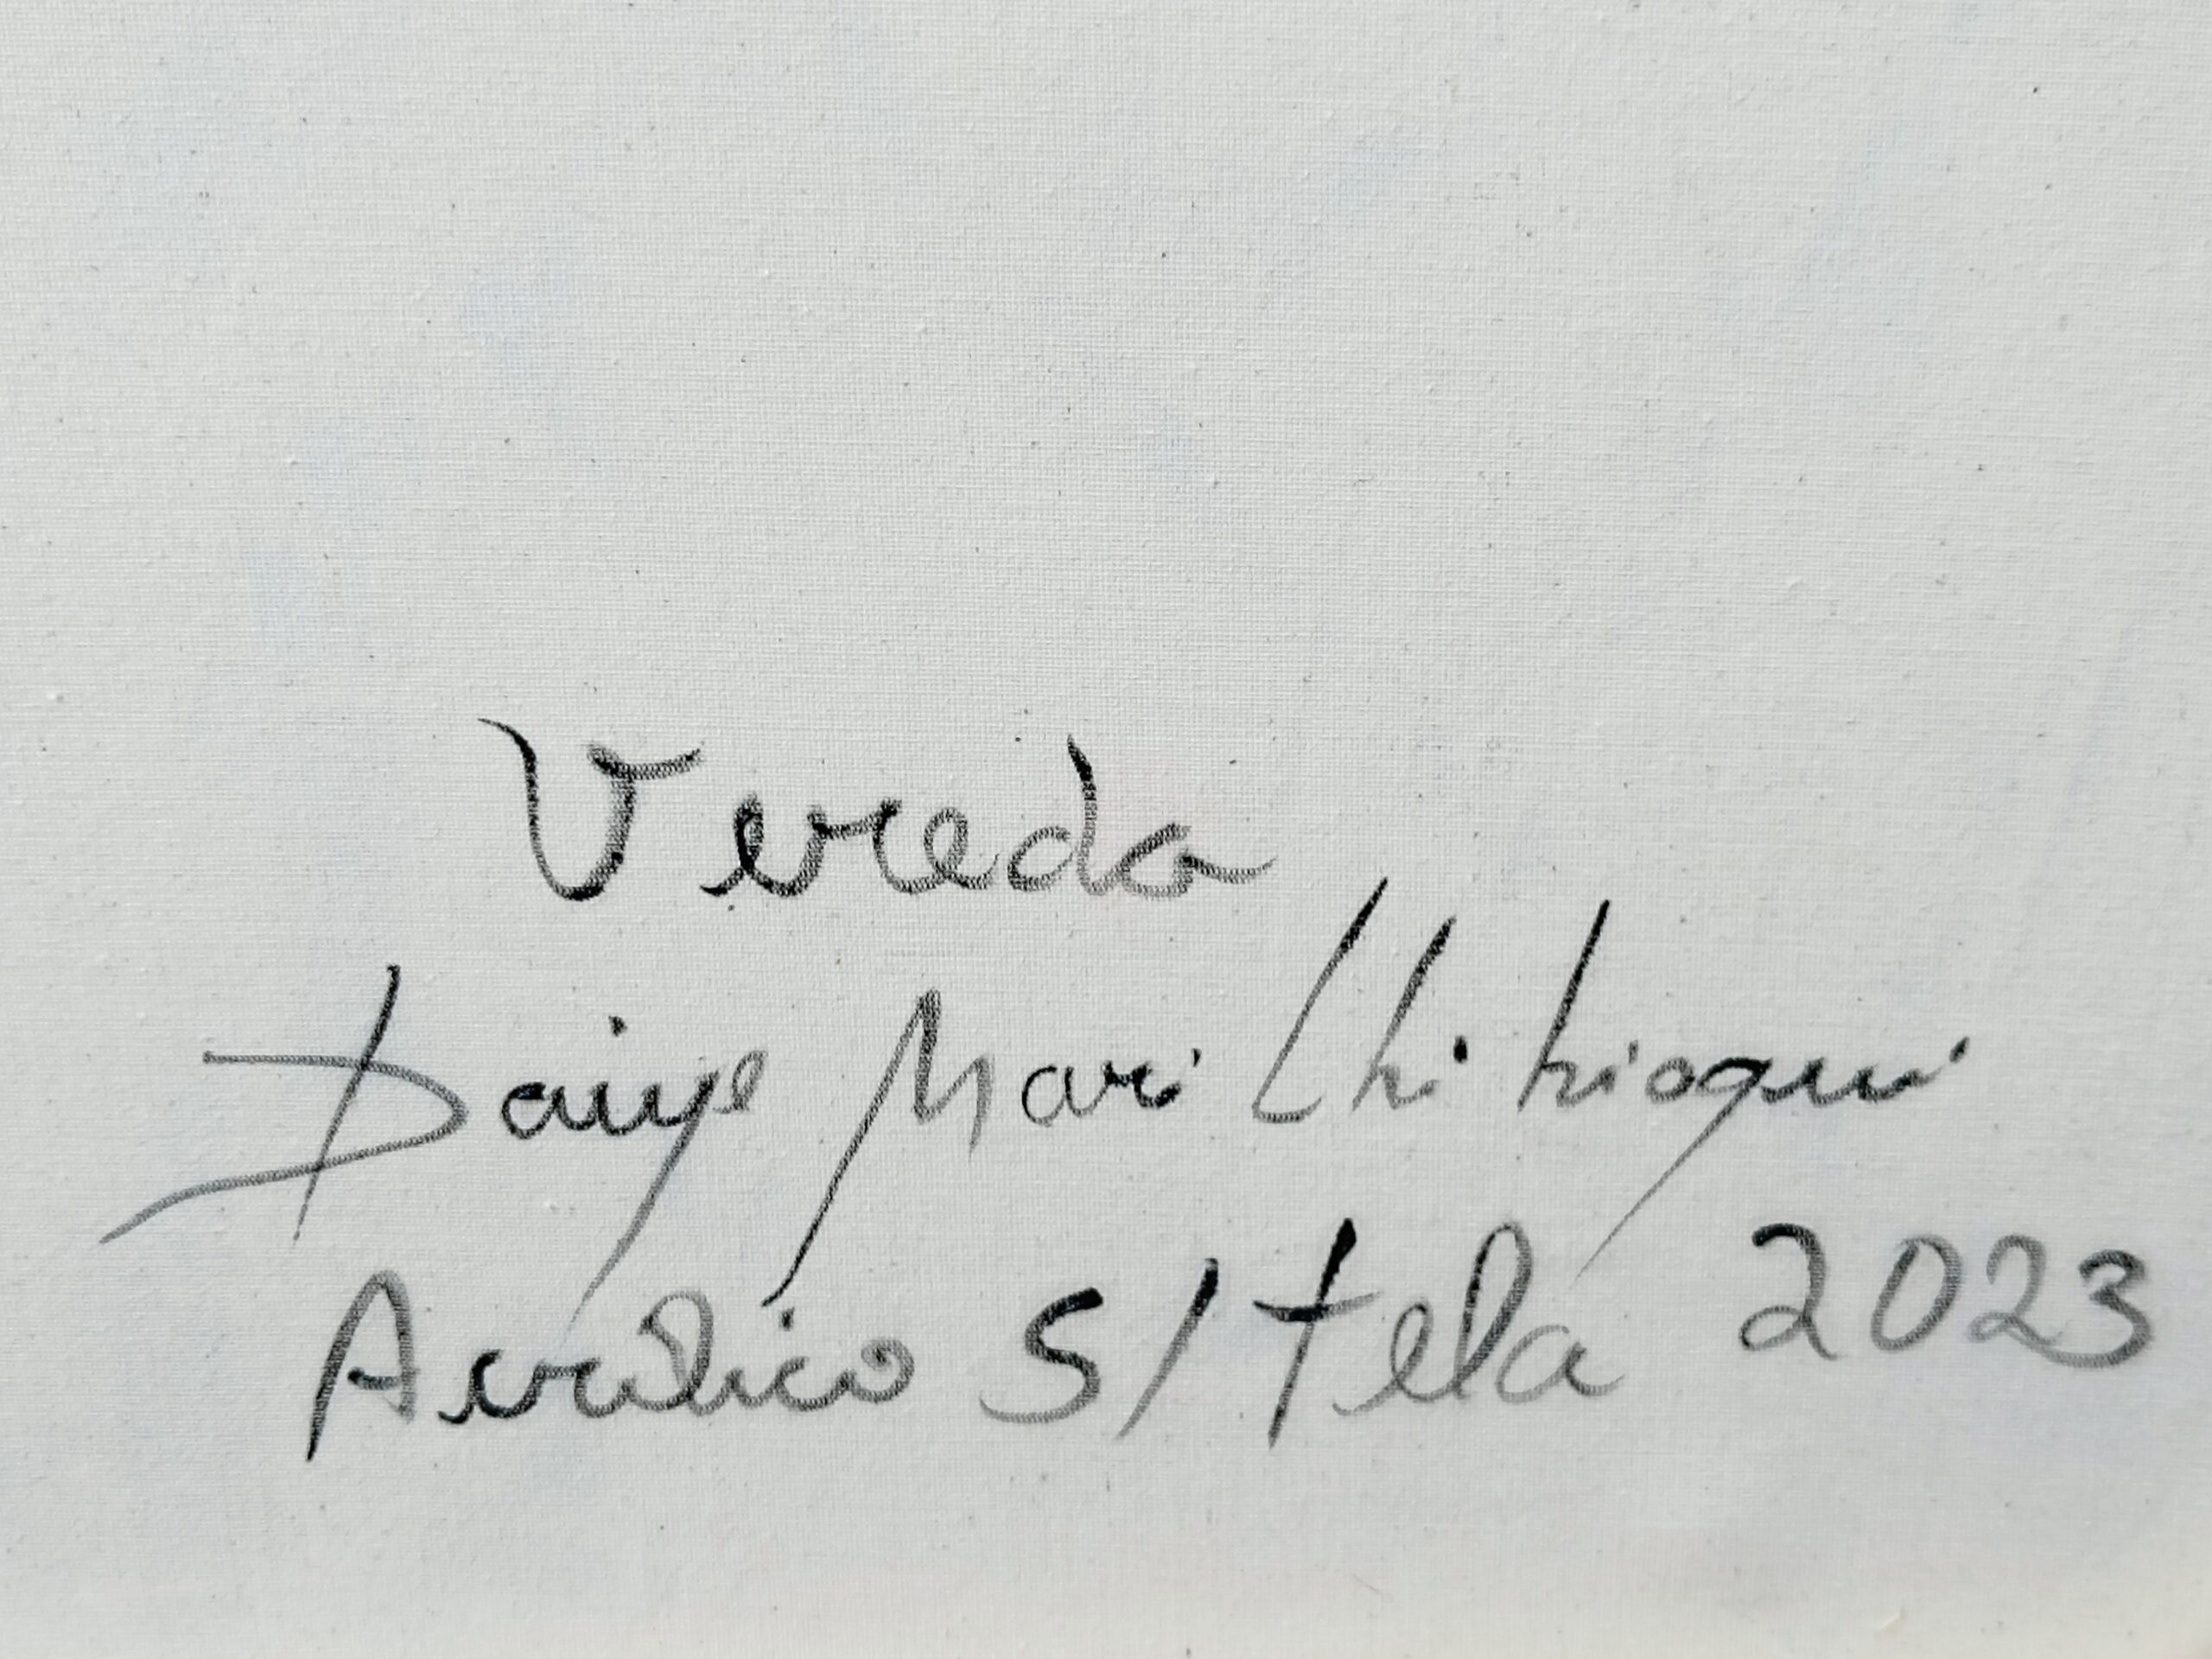 Vereda
Daiye Mari Chitrioqui
Acrílico S/tela 2023